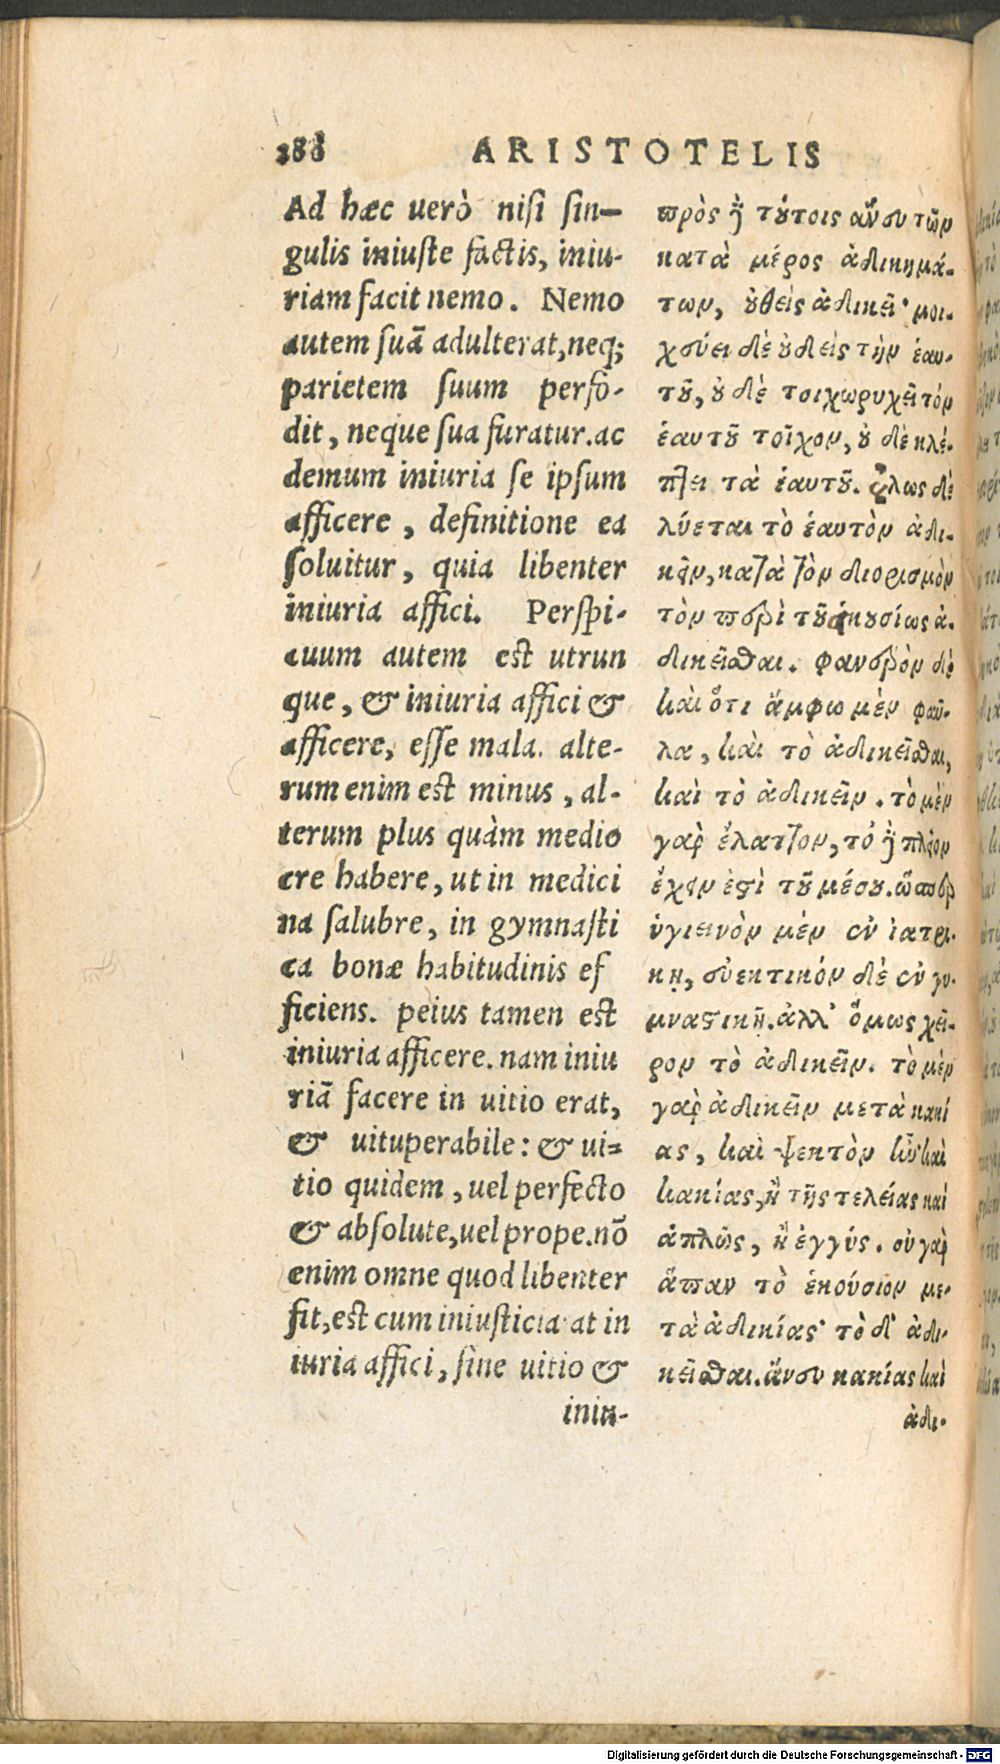 288 ARISTOTELIS
Ad hæc uerò nisi sin-
gulis iniuste factis, iniu-
riam facit nemo. Nemo
autem suã adulterat, neq;
parietem suum perfo-
dit, neque sua furatur. ac
demum iniuria se ipsum
afficere, definitione ea
soluitur, quia libenter
iniuria affici. Perspi-
cuum autem est utrun
que, & iniuria affici &
afficere, esse mala. alte-
rum enim est minus, al-
terum plus quàm medio
cre habere, ut in medici
na salubre, in gymnasti
ca bonæ habitudinis ef
ficiens. peius tamen est
iniuria afficere. nam iniu
riã facere in uitio erat,
& uituperabile: & ui-
tio quidem, uel perfecto
& absolute, uel prope. nõ
enim omne quod libenter
fit, est cum iniusticia at in
iuria affici, sine uitio &
iniu-
πρὸς ἢ τούτοις ἄνευ τῶν
κατὰ μέρος ἀδικημά-
των, οὐθεὶς ἀδικεῖ· μοι-
χεύει δὲ οὐδεὶς τὴν ἑαυ-
τοῦ, οὐδὲ τοιχωρυχεῖ τὸν
ἑαυτοῦ τοῖχον, οὐδὲ κλέ-
πτει τὰ ἑαυτοῦ. ὅλως δὲ
λύεται τὸ ἑαυτὸν ἀδι-
κεῖν, κατὰ τὸν διορισμὸν
τὸν περὶ τοῦ ἑκουσίως ἀ-
δικεῖσθαι. φανερὸν δὲ
καὶ ὅτι ἄμφω μὲν φαῦ-
λα, καὶ τὸ ἀδικεῖσθαι,
καὶ τὸ ἀδικεῖν. τὸ μὲν
γὰρ ἔλαττον, τὸ ἢ πλέον
ἔχειν ἐστὶ τοῦ μέσου. ὥσπερ
ὑγιεινὸν μὲν ἐν ἰατρι-
κῇ, εὐεκτικὸν δὲ ἐν γυ-
μναστικῇ. ἀλλ' ὅμως χεῖ-
ρον τὸ ἀδικεῖν. τὸ μὲν
γὰρ ἀδικεῖν μετὰ κακί
ας, καὶ ψεκτὸν ἦν· καὶ
κακίας, ἢ τῆς τελείας καὶ
ἁπλῶς, ἢ ἐγγύς. οὐ γὰρ
ἅπαν τὸ ἑκούσιον με-
τὰ ἀδικίας· τὸ δ' ἀδι-
κεῖσθαι. ἄνευ κακίας καὶ
ἀδι-
Digitalisierung gefördert durch die Deutsche Forschungsgemeinschaft - DFG